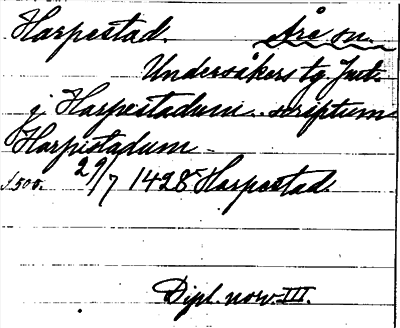 Harpestad. Åre sn.
Undersåkers tg. Jmt.
j Harpestadum scriptum
Harpistadum
s. 500. 29/7 1428 Harpestad
Dipl. norv. III.